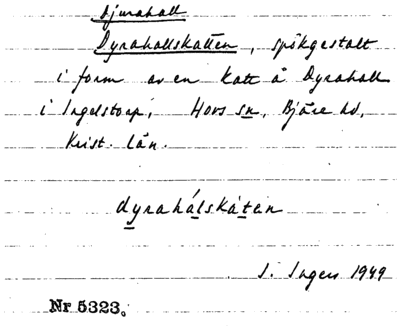 Djurahall
Dyrahallskatten, spökgestalt
i form av en katt å Dyrahall
i Ingelstorp, Hovs sn, Bjäre hd,
Krist. län.
dyrahálskátan
I. Ingers 1949
Nr 5323.